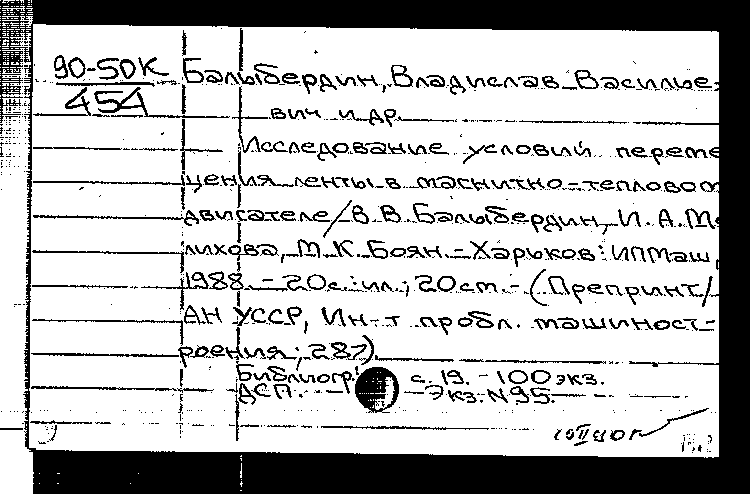 90-5DK Балыбердин, Владислав Василье-
454
вич и др.
Исследование условий переме
щения ленты в магнитно-тепловом
двигателе / В.В. Балыбердин, И.А. Ме
лихова, М.К. Боян. - Харьков: ИПМаш,
1988. - 20с.: ил.; 20см. - (Препринт /
АН УССР, Ин-т пробл. машиност-
роения; 287).
Библиогр.: с. 19. - 100 экз.
ДСП. - Экз. N 95.